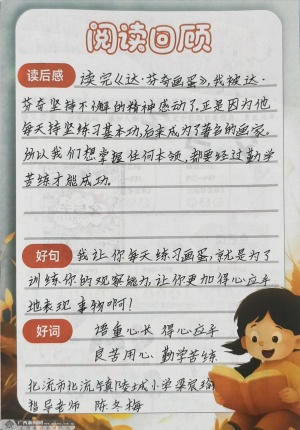 阅读回顾
读后感 读完《达·芬奇画蛋》，我被达·
芬奇坚持不懈的精神感动了，正是因为他
每天持坚练习基本功，后来成为了著名的画家。
所以我们想掌握任何本领，都要经过勤学
苦练才能成功。
好句 我让你每天练习画蛋，就是为了
训练你的观察能力，让你更加得心应手
地表现事物啊！
好词 语重心长 得心应手
良苦用心 勤学苦练
北流市北流镇陵城小学梁宸瑜
指导老师 陈冬梅